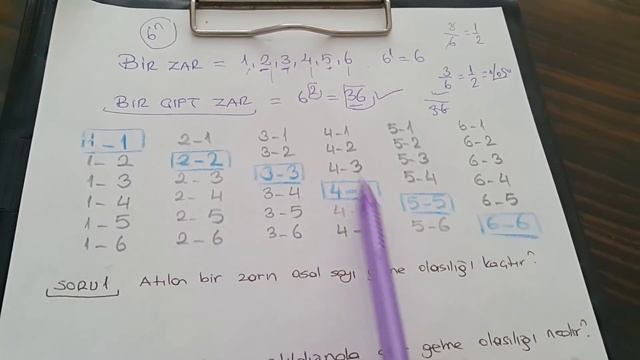 6ⁿ
3/6 = 1/2
BİR ZAR = 1, 2, 3, 4, 5, 6 6¹ = 6
3/6 = 1/2 = %50
BİR ÇİFT ZAR = 6² = 36 ✓
36
1-1 2-1 3-1 4-1 5-1 6-1
1-2 2-2 3-2 4-2 5-2 6-2
1-3 2-3 3-3 4-3 5-3 6-3
1-4 2-4 3-4 4- 5-4 6-4
1-5 2-5 3-5 4- 5-5 6-5
1-6 2-6 3-6 4- 5-6 6-6
SORU1 Atılan bir zarın asal sayı gelme olasılığı kaçtır?
gelme olasılığı nedir?